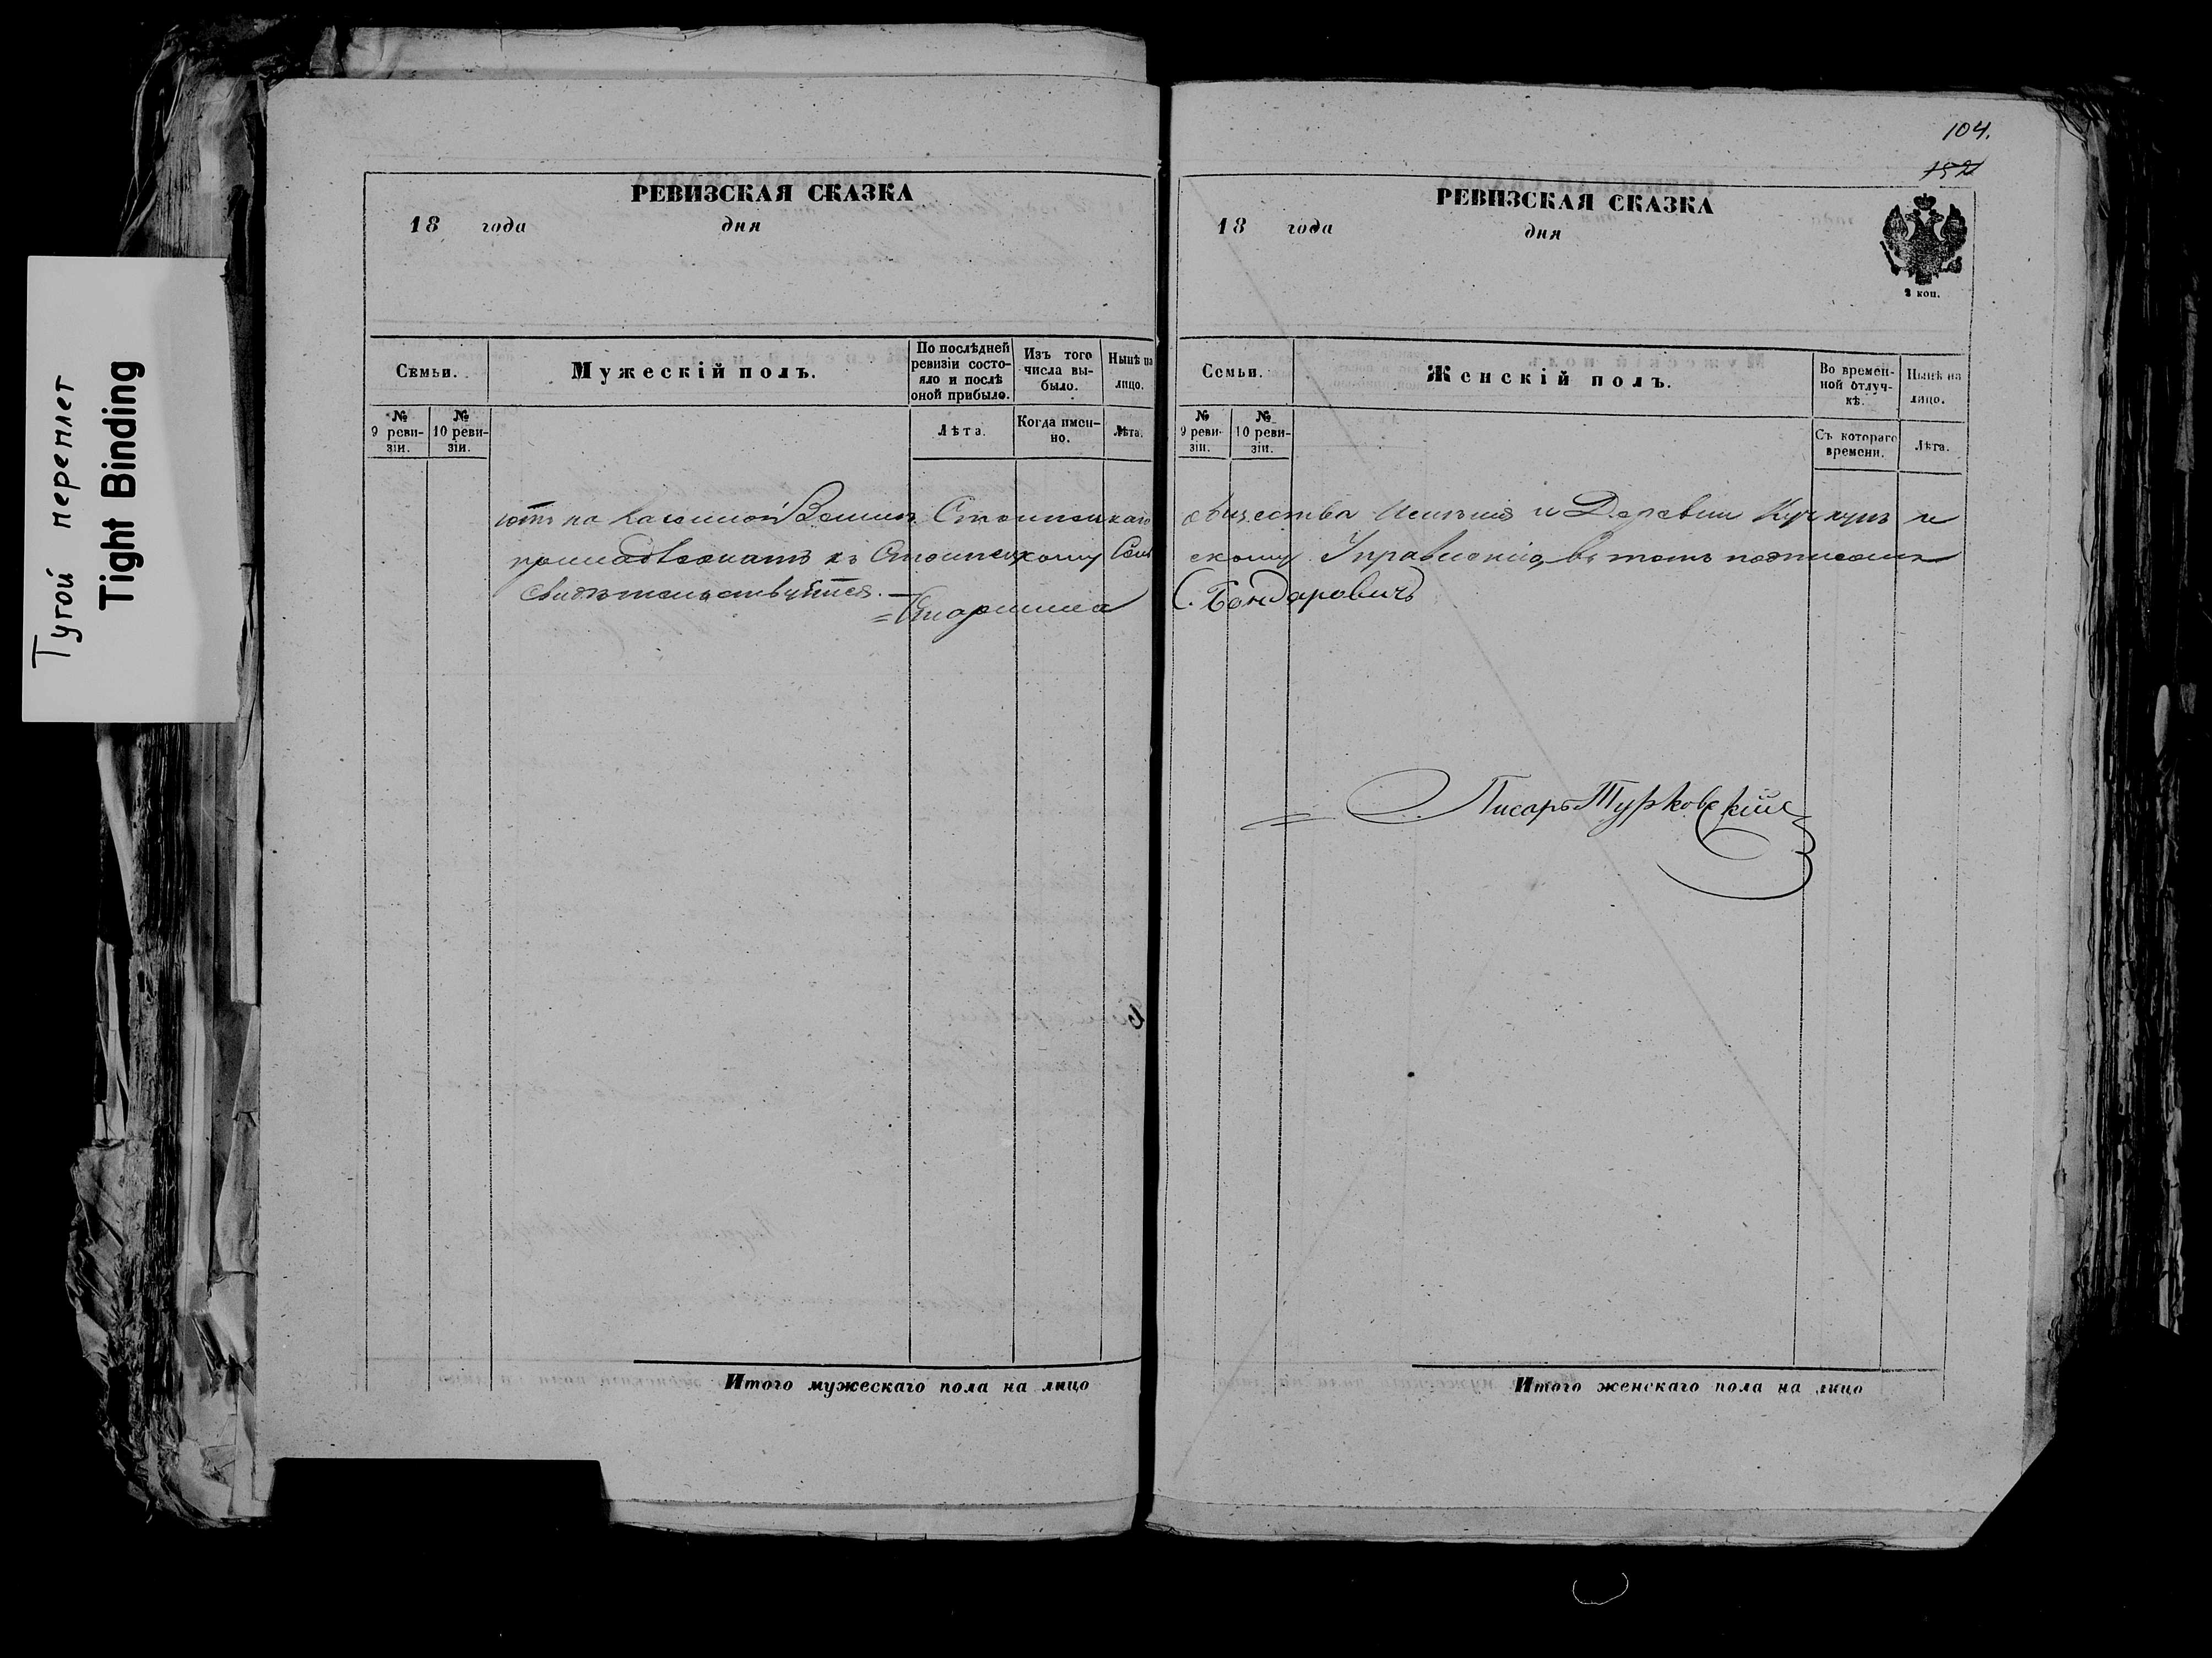 Тугой переплет
Tight Binding
РЕВИЗСКАЯ СКАЗКА
18 года дня
Семьи.
Мужескій полъ.
По послѣдней ревизіи состояло и послѣ оной прибыло.
Изъ того числа выбыло.
Нынѣ на лицо.
№ 9 ревизіи.
№ 10 ревизіи.
Лѣта.
Когда именно.
Лѣта.
ютъ на Казенной Земли
свидѣтельствуется.
Старшина
Итого мужескаго пола на лицо
104.
РЕВИЗСКАЯ СКАЗКА
18 года дня
2 коп.
Семьи.
Женскій полъ.
Во временной отлучкѣ.
Нынѣ на лицо.
№ 9 ревизіи.
№ 10 ревизіи.
Съ котораго времени.
Лѣта.
общества Имѣнія и Деревни и
скому Управленію, въ томъ подписомъ
С. Бондаровичъ
Писарь Турковскій
Итого женскаго пола на лицо